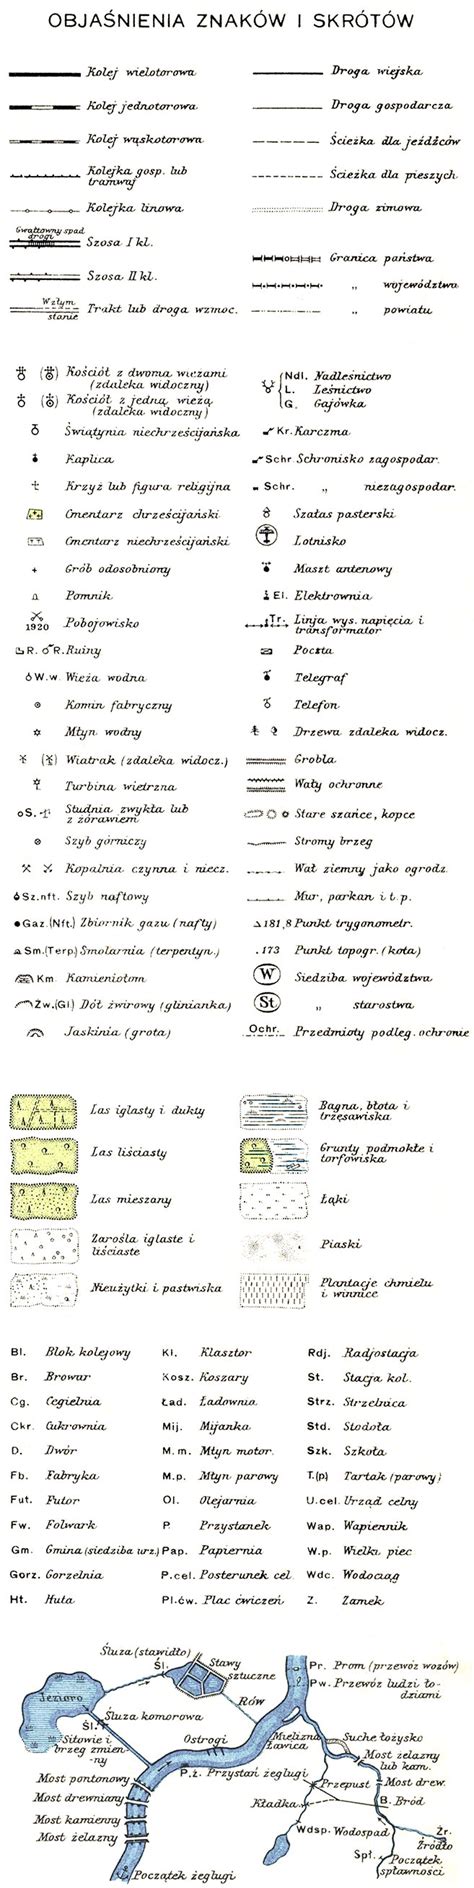 OBJAŚNIENIA ZNAKÓW I SKRÓTÓW
Kolej wielotorowa
Kolej jednotorowa
Kolej wąskotorowa
Kolejka gosp. lub
tramwaj
Kolejka linowa
Gwałtowny spad
drogi
Szosa I kl.
Szosa II kl.
W złym
stanie
Trakt lub droga wzmoc.
Droga wiejska
Droga gospodarcza
Ścieżka dla jeźdźców
Ścieżka dla pieszych
Droga zimowa
Granica państwa
„ województwa
„ powiatu
Kościół z dwoma wieżami
(zdaleka widoczny)
Kościół z jedną wieżą
(zdaleka widoczny)
Świątynia niechrześcijańska
Kaplica
Krzyż lub figura religijna
Cmentarz chrześcijański
Cmentarz niechrześcijański
Grób odosobniony
Pomnik
1920 Pobojowisko
R. R. Ruiny
W.w. Wieża wodna
Komin fabryczny
Młyn wodny
Wiatrak (zdaleka widocz.)
Turbina wietrzna
S. Studnia zwykła lub
z żórawiem
Szyb górniczy
Kopalnia czynna i niecz.
Sz.nft. Szyb naftowy
Gaz.(Nft.) Zbiornik gazu (nafty)
Sm.(Terp.) Smolarnia (terpentyn.)
Km. Kamieniołom
Żw.(Gl.) Dół żwirowy (glinianka)
Jaskinia (grota)
Ndl. Nadleśnictwo
L. Leśnictwo
G. Gajówka
Kr. Karczma
Schr. Schronisko zagospodar.
Schr. „ niezagospodar.
Szałas pasterski
Lotnisko
Maszt antenowy
El. Elektrownia
Tr. Linja wys. napięcia i
transformator
Poczta
Telegraf
Telefon
Drzewa zdaleka widocz.
Grobla
Wały ochronne
Stare szańce, kopce
Stromy brzeg
Wał ziemny jako ogrodz.
Mur, parkan i t.p.
181,8 Punkt trygonometr.
.173 Punkt topogr. (kota)
W Siedziba województwa
St „ starostwa
Ochr. Przedmioty podleg. ochronie
Las iglasty i dukty
Las liściasty
Las mieszany
Zarośla iglaste i
liściaste
Nieużytki i pastwiska
Bagna, błota i
trzęsawiska
Grunty podmokłe i
torfowiska
Łąki
Piaski
Plantacje chmielu
i winnice
Bl. Blok kolejowy
Br. Browar
Cg. Cegielnia
Ckr. Cukrownia
D. Dwór
Fb. Fabryka
Fut. Futor
Fw. Folwark
Gm. Gmina (siedziba urz.)
Gorz. Gorzelnia
Ht. Huta
Kl. Klasztor
Kosz. Koszary
Ład. Ładownia
Mij. Mijanka
M.m. Młyn motor.
M.p. Młyn parowy
Ol. Olejarnia
P. Przystanek
Pap. Papiernia
P.cel. Posterunek cel
Pl.ćw. Plac ćwiczeń
Rdj. Radjostacja
St. Stacja kol.
Strz. Strzelnica
Std. Stodoła
Szk. Szkoła
T.(p) Tartak (parowy)
U.cel. Urząd celny
Wap. Wapiennik
W.p. Wielki piec
Wdc. Wodociąg
Z. Zamek
Śluza (stawidło)
Śl.
Stawy
sztuczne
Pr. Prom (przewóz wozów)
Pw. Przewóz ludzi ło-
dziami
Jezioro
Rów
Śluza komorowa
Śl.
Sitowie i
brzeg zmien-
ny
Ostrogi
Mielizna
Ławica
Suche łożysko
Most żelazny
lub kam.
P.ż. Przystań żeglugi
Przepust
Most drew.
Most pontonowy
Most drewniany
Most kamienny
Most żelazny
Kładka
B. Bród
Wdsp. Wodospad
Źr.
Źródło
Spł.
Początek
spławności
Początek żeglugi